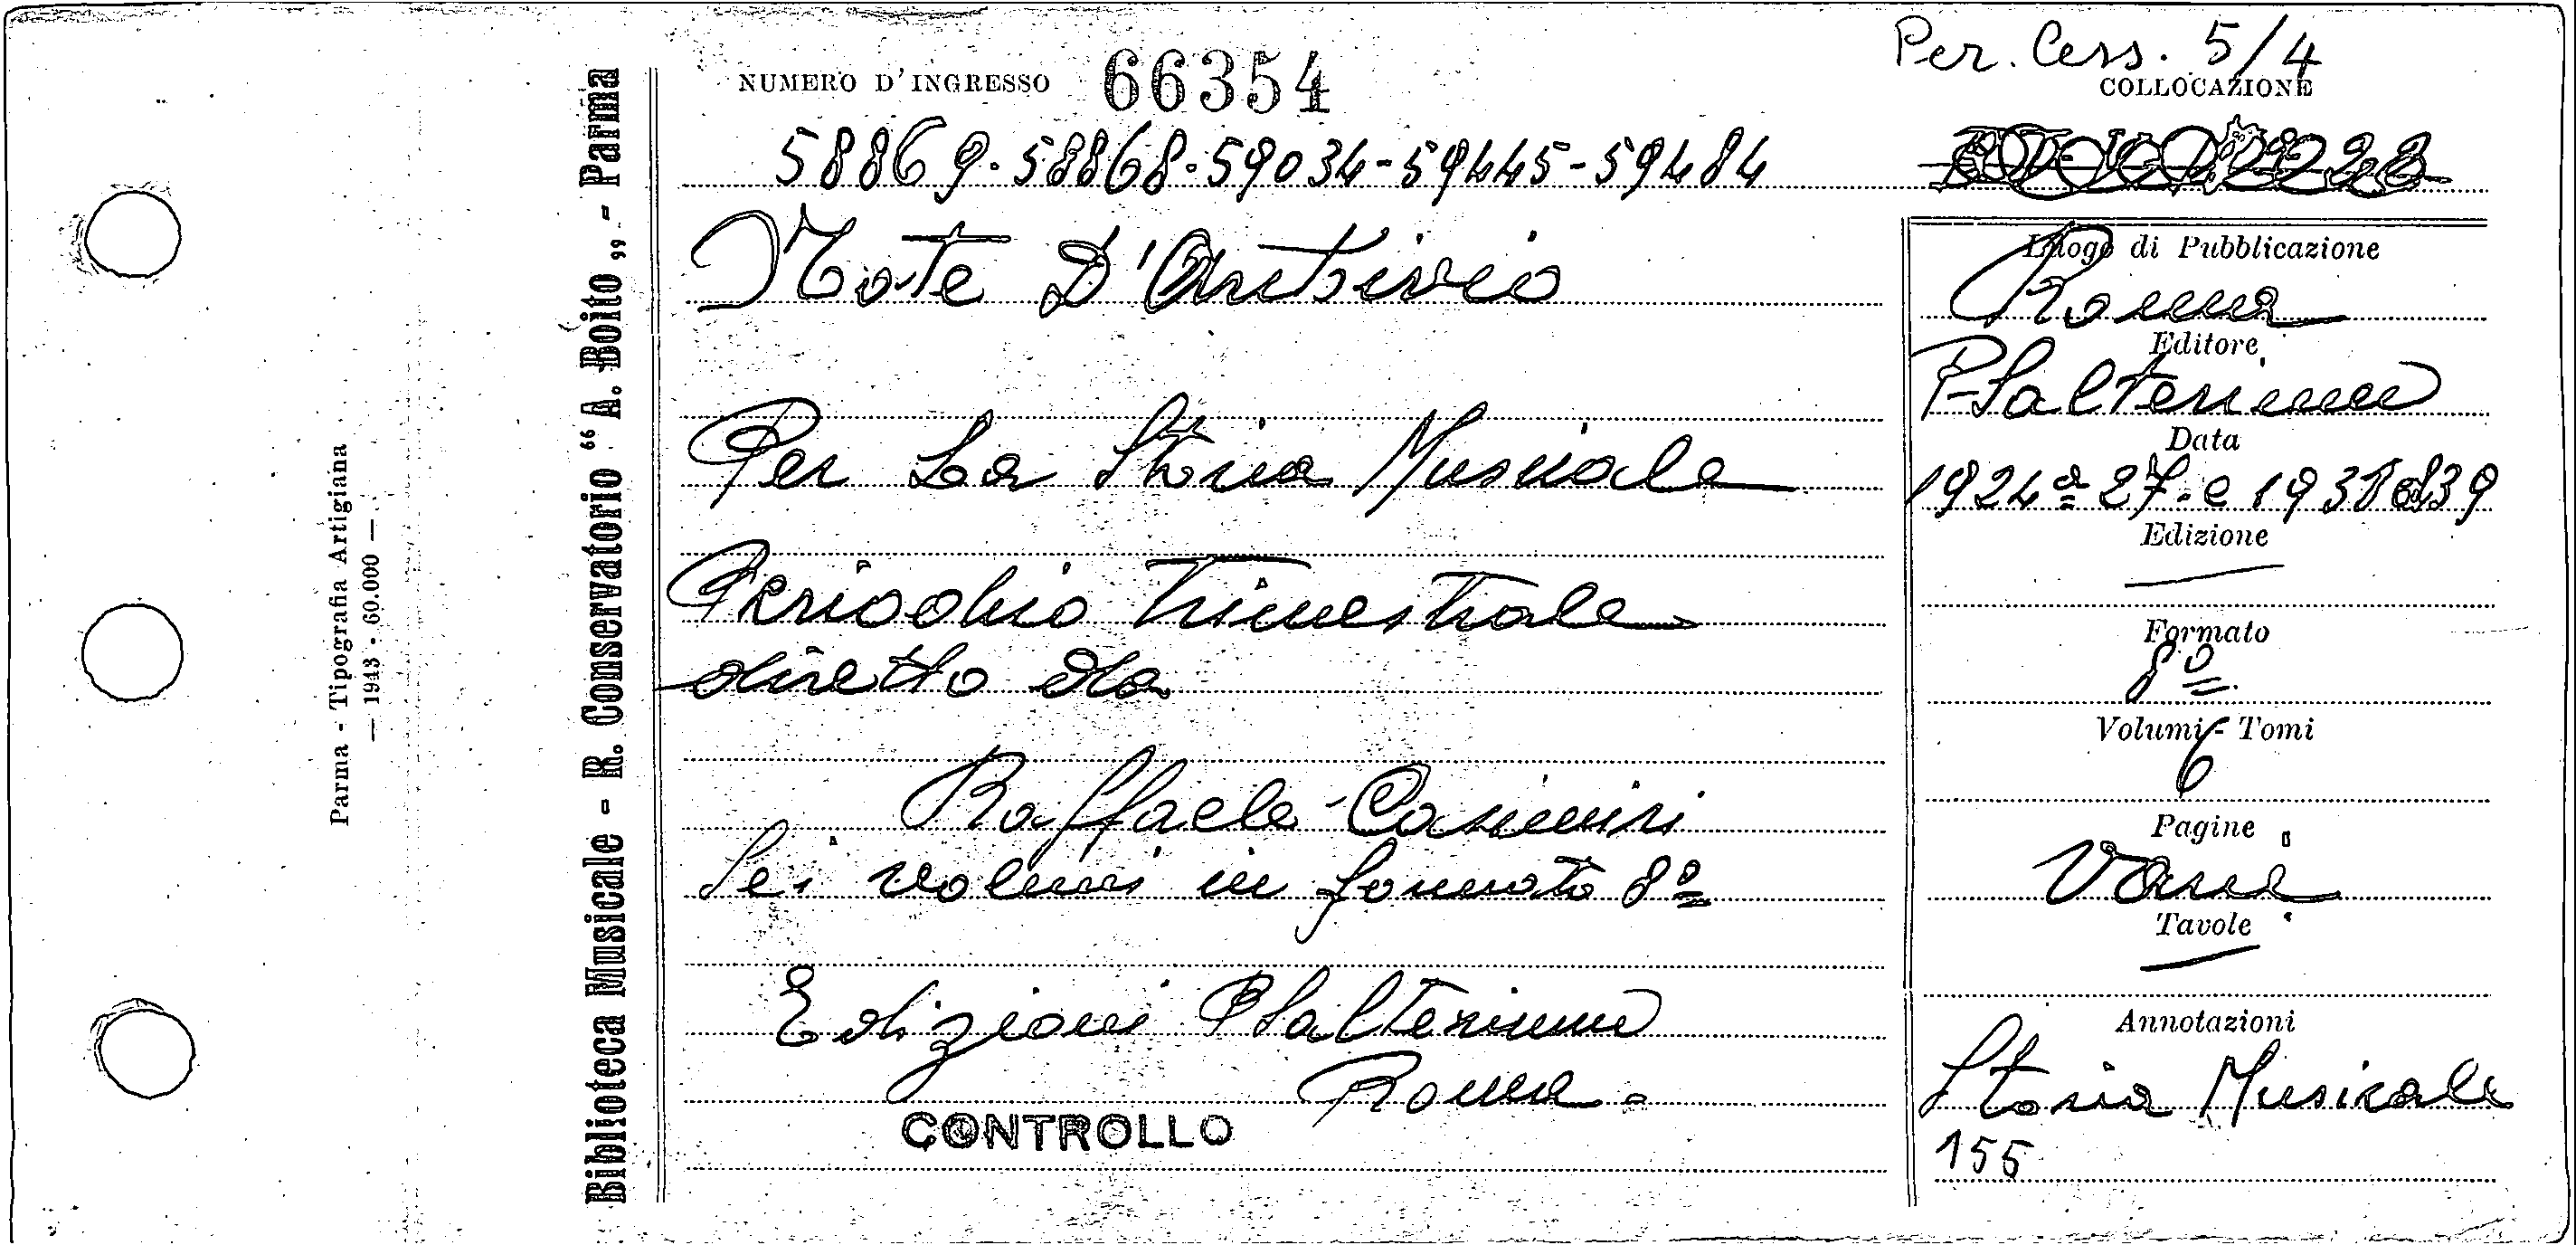 Per. Cess. 5/4
NUMERO D'INGRESSO 66354
COLLOCAZIONE
58869-58868-59034-59445-59484
Note D'Archivio
Per La Storia Musicale
Periodico Trimestrale
diretto da
Raffaele Casimiri
Sei volumi in formato 8º
Edizioni Psalterium
Roma.
CONTROLLO
Luogo di Pubblicazione
Roma
Editore
Psalterium
Data
1924 a 27. e 1938 39
Edizione
Formato
8º
Volumi - Tomi
6
Pagine
Varie
Tavole
Annotazioni
Storia Musicale
155
Biblioteca Musicale - R. Conservatorio “A. Boito„ - Parma
Parma - Tipografia Artigiana
— 1943 - 60.000 —